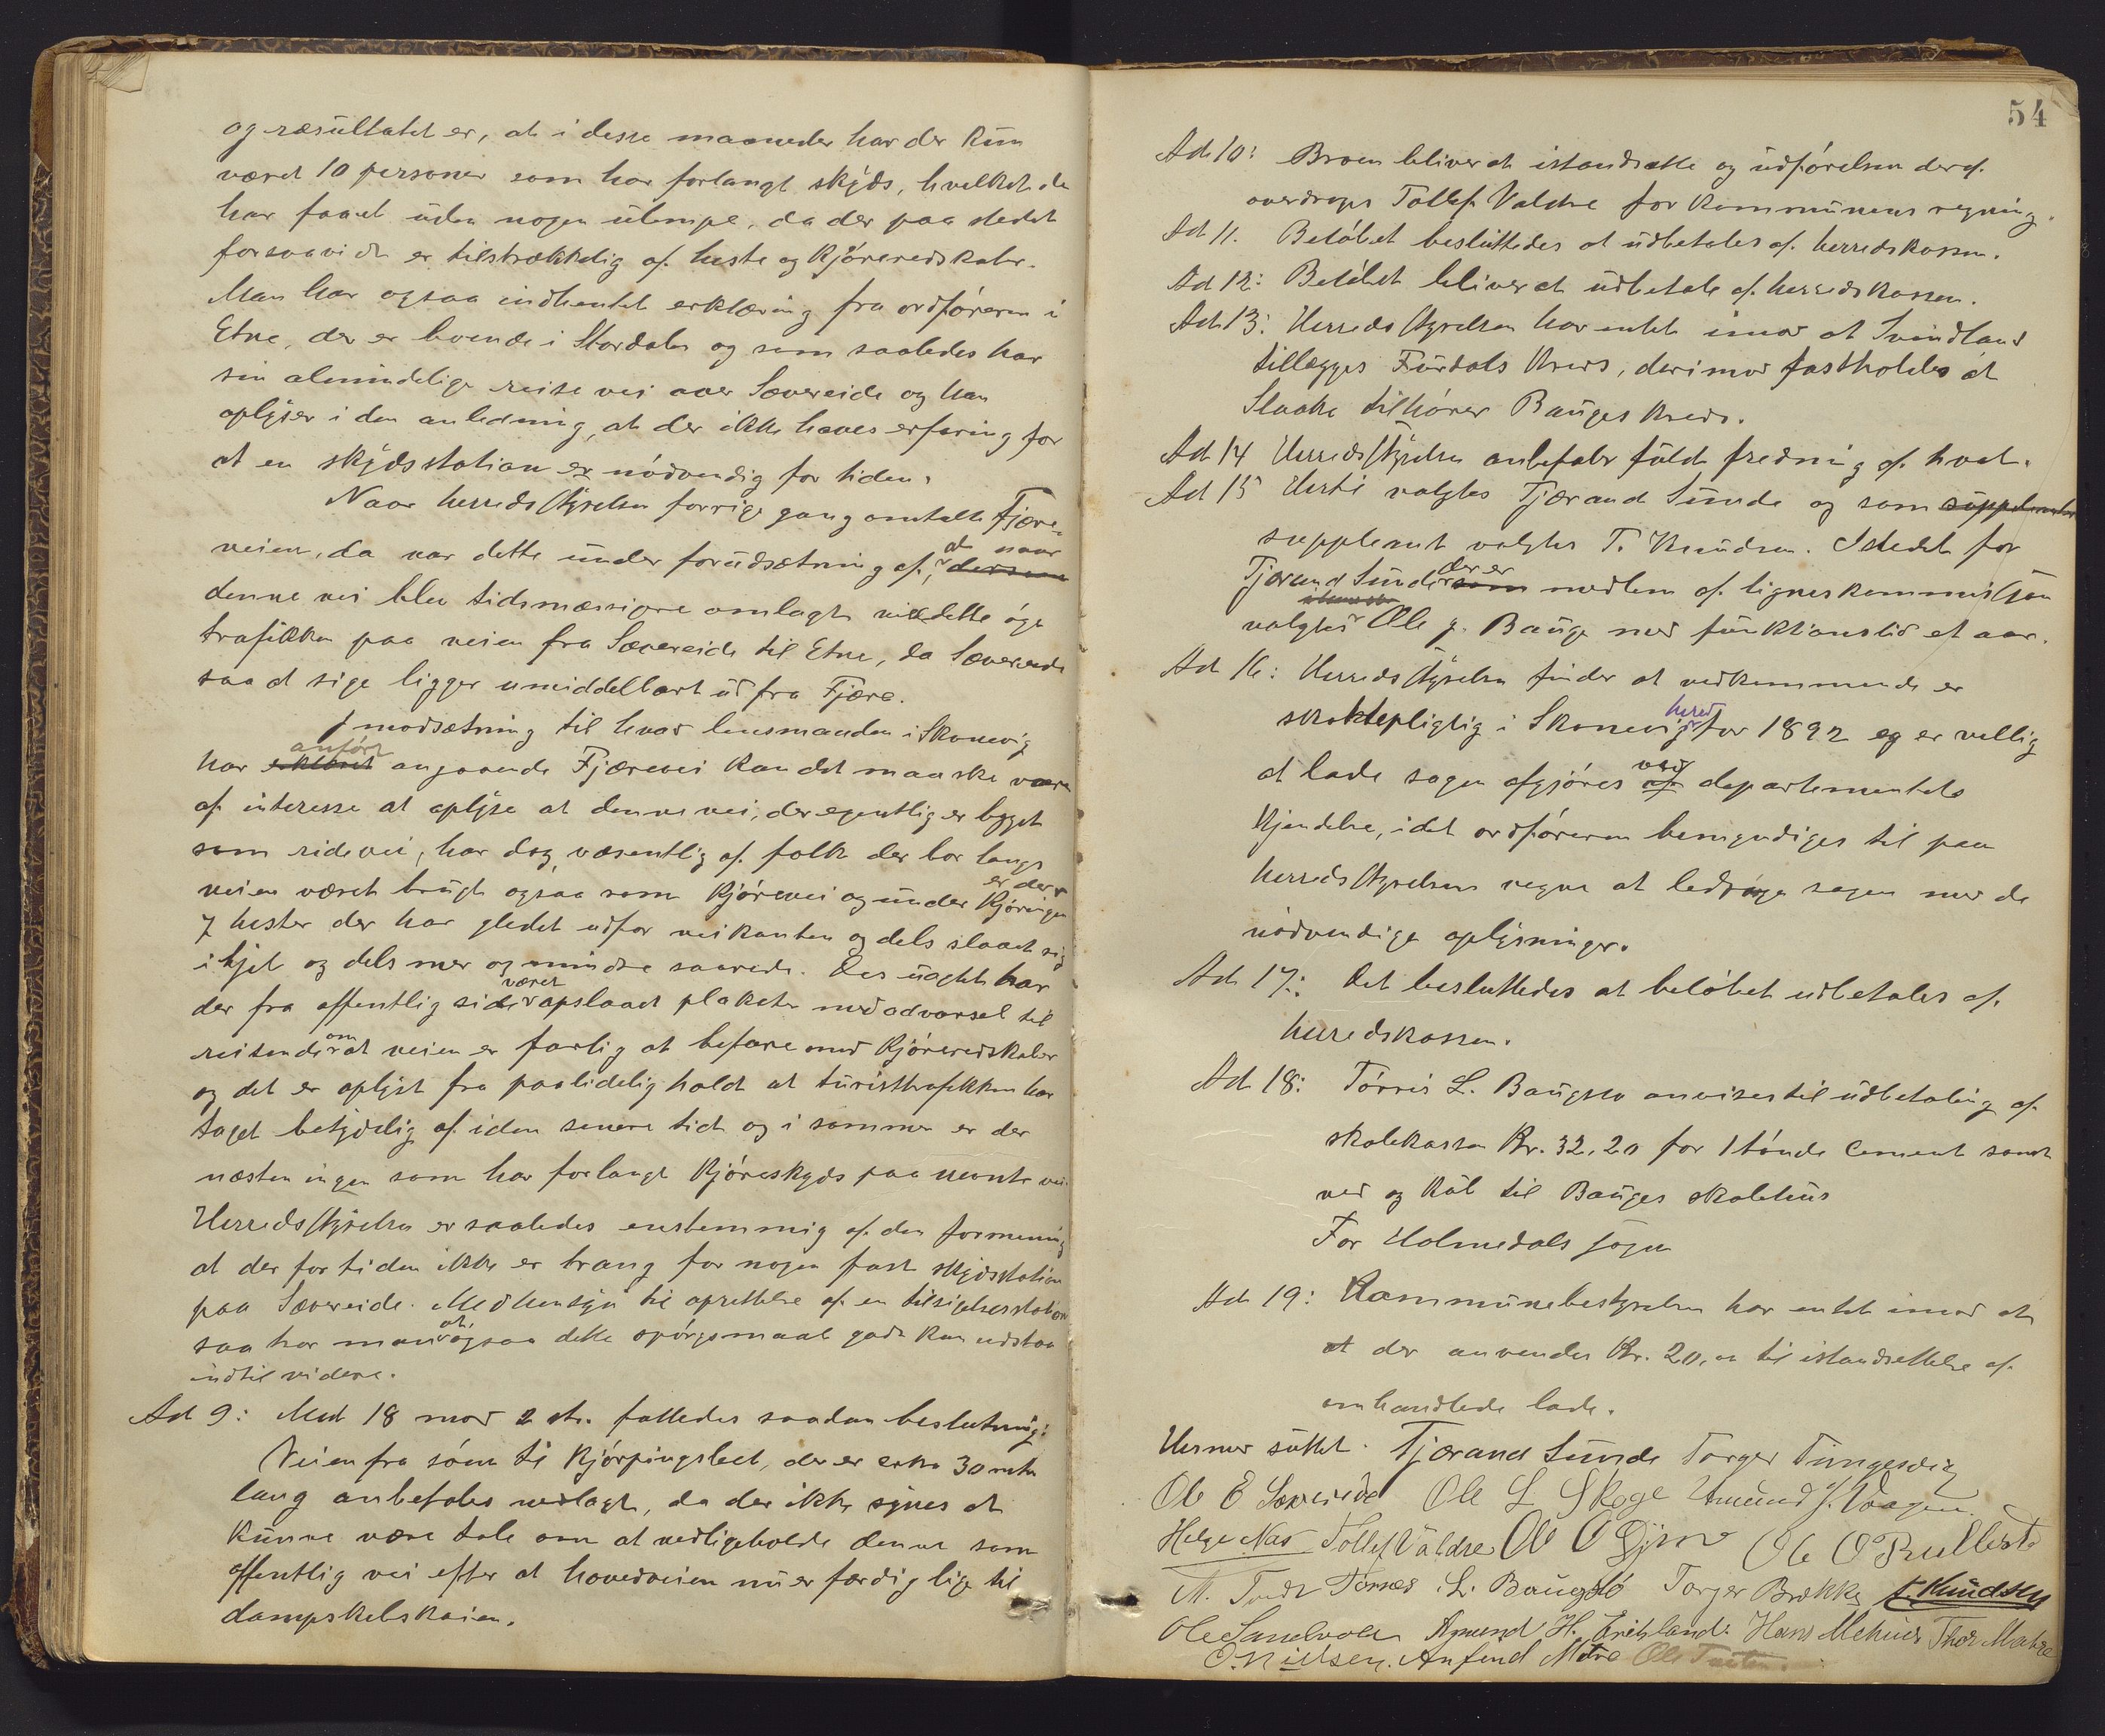 og ræsultatet er, at i desse maaneder har der kun
været 10 personer som har forlangt skyds, hvelket de
har faaet uden nogen ulempe, da der paa stedet
forsaavidt er tilstrækkelig af heste og kjøreredskaber.
Man har ogsaa indhentet erklæring fra ordføreren i
Etne, der er boende i Stordalen og som saaledes har
sin almindelige reise vei over Sævereide og han
oplyser i den anledning, at der ikke haves erfaring for
at en skydsstation er nødvendig for tiden.
Naar herredsstyrelsen forrige gang omtalte Fjære-
veien, da var dette under forudsætning af, at naar dersom
denne vei blev tidsmæssigere omlagt vil dette øge
trafikken paa veien fra Sævereide til Etne, da Sævereide
saa at sige ligger umiddelbart ud fra Fjære.
I modsætning til hvad lensmanden i Skonevig
har erklæret anført angaaende Fjærevei kan det maaske være
af interesse at oplyse at denne vei, der egentlig er bygget
som ridevei, har dog væsentlig af folk der bor langs
veien været brugt ogsaa som kjørevei og under kjøringen er der
7 hester der har gledet udfor veikanten og dels slaaet sig
ihjel og dels mer og mindre saarede. Des uagtet har
der fra offentlig side været opslaaet plakater med advarsel til
reisende om at veien er farlig at befare med kjøreredskaber
og det er oplyst fra paalidelig hold at turisttrafikken har
taget betydelig af i den senere tid og i sommer er der
næsten ingen som har forlangt kjøreskyds paa nevnte vei.
Herredsstyrelsen er saaledes enstemmig af den formening
at der for tiden ikke er trang for nogen fast skydsstation
paa Sævereide. Med hensyn til oprettelse af en tilsigelsesstation
saa har man at ogsaa dette spørgsmaal godt kan udstaa
indtil videre.
Ad 9: Med 18 mod 2 st. fattedes saadan beslutning:
Veien fra søen til Kjørpingsleet, der er cirka 30 mtr
lang anbefales nedlagt, da der ikke synes at
kunne være tale om at vedligeholde denne som
offentlig vei efter at hovedveien nu er færdig lige til
dampskibskaien.
54
Ad 10: Broen bliver at istandsætte og udførelsen deraf
overdrages Tollef Valdre for kommunens regning.
Ad 11. Beløbet besluttedes at udbetales af herredskassen.
Ad 12: Beløbet bliver at udbetale af herredskassen.
Ad 13: Herredsstyrelsen har entet imod at Svindland
tillægges Furdals kreds, derimod fastholdes at
Slaake tilhører Bauges kreds.
Ad 14 Herredsstyrelsen anbefaler fuld fredning af hval.
Ad 15 Hertil valgtes Tjærand Sunde og som
suppleant valgtes T. Knudsen. Istedet for
Tjærand Sunde der er som medlem af ligneskommissjon
valgtes Ole J. Bauge med funktionstid et aar.
Ad 16: Herredsstyrelsen finder at vedkommende er
skattepligtig i Skonevig hered for 1892 og er vellig
at lade sagen afgjøres ved af departementets
kjendelse, idet ordføreren bemyndiges til paa
herredsstyrelsens vegne at ledsage sagen med de
nødvendige oplysninger.
Ad 17: Det besluttedes at beløbet udbetales af
herredskassen.
Ad 18: Tørris L. Baugstø anvises til udbetaling af
skolekassen Kr. 32,20 for 1 tønde cement samt
ved og kul til Bauges skolehus
For Holmedals sogn
Ad 19: Kommunebestyrelsen har entet imod at
at der anvendes Kr. 20,00 til istandsettelse af
omhandlede lade.
Hermed sluttet. Tjærand Sunde Torger Tungesvig
Ole E Sævereide Ole L Skoge Amund J. Vaagen.
Helge Næs Tollef Valdre Ole O Ole O Tullest
M. Tørres L. Baugstø Torger Brekke T. Knudsen
Ole Sandvold Amund H. Hans Thor Matre
O. Nielsen. Anfind Matre Ole